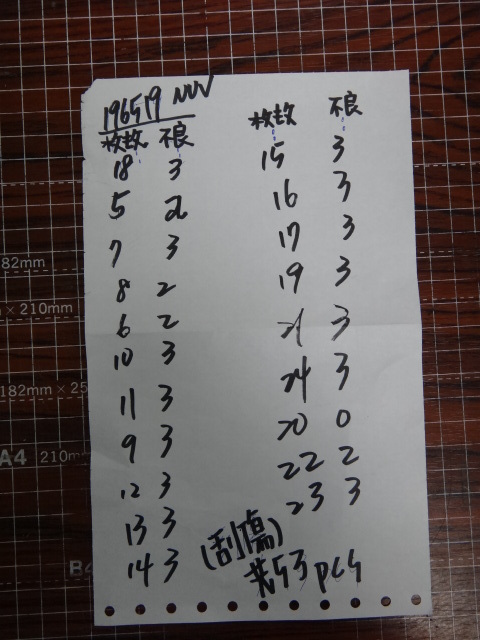 196519 NVV
枚数 不良
18 3
5 2
7 3
8 2
6 2
10 3
11 3
9 3
12 3
13 3
14 3
枚数 不良
15 3
16 3
17 3
19 3
21 3
24 3
20 0
22 2
23 3
(刮傷)
共53 pcs
182mm
x 210mm
182mm x 25
A4 210m
B4